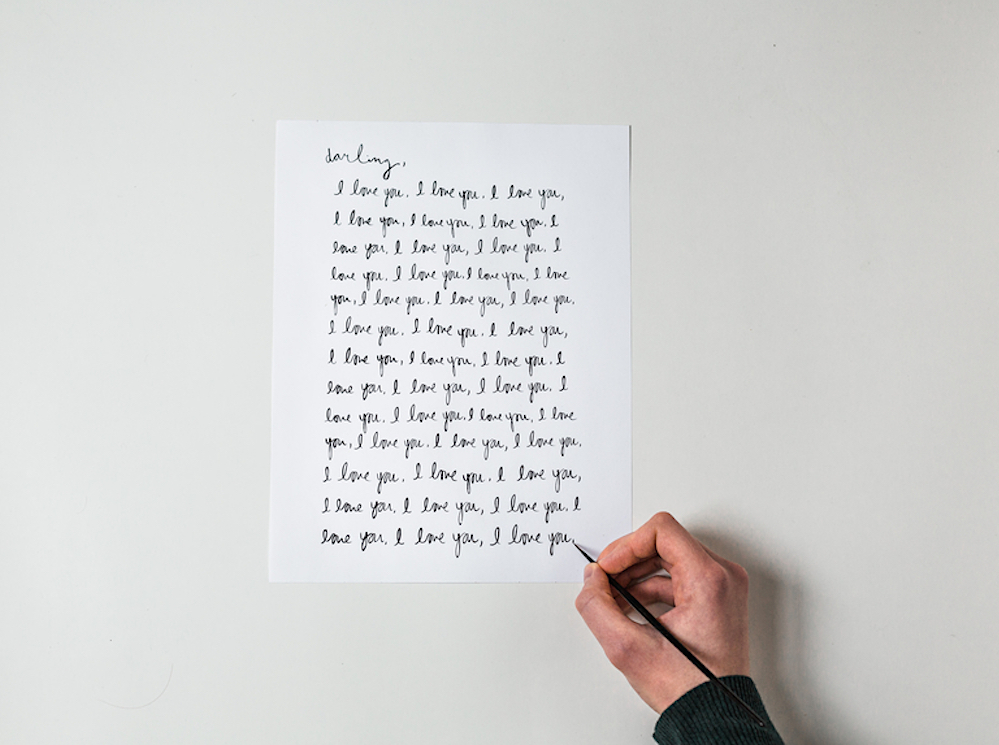 darling,
I love you. I love you. I love you,
I love you, I love you, I love you. I
love you. I love you, I love you. I
love you. I love you. I love you, I love
you, I love you. I love you, I love you.
I love you. I love you. I love you,
I love you, I love you, I love you. I
love you. I love you, I love you. I
love you. I love you. I love you, I love
you, I love you. I love you, I love you.
I love you. I love you. I love you,
I love you. I love you, I love you. I
love you. I love you, I love you.